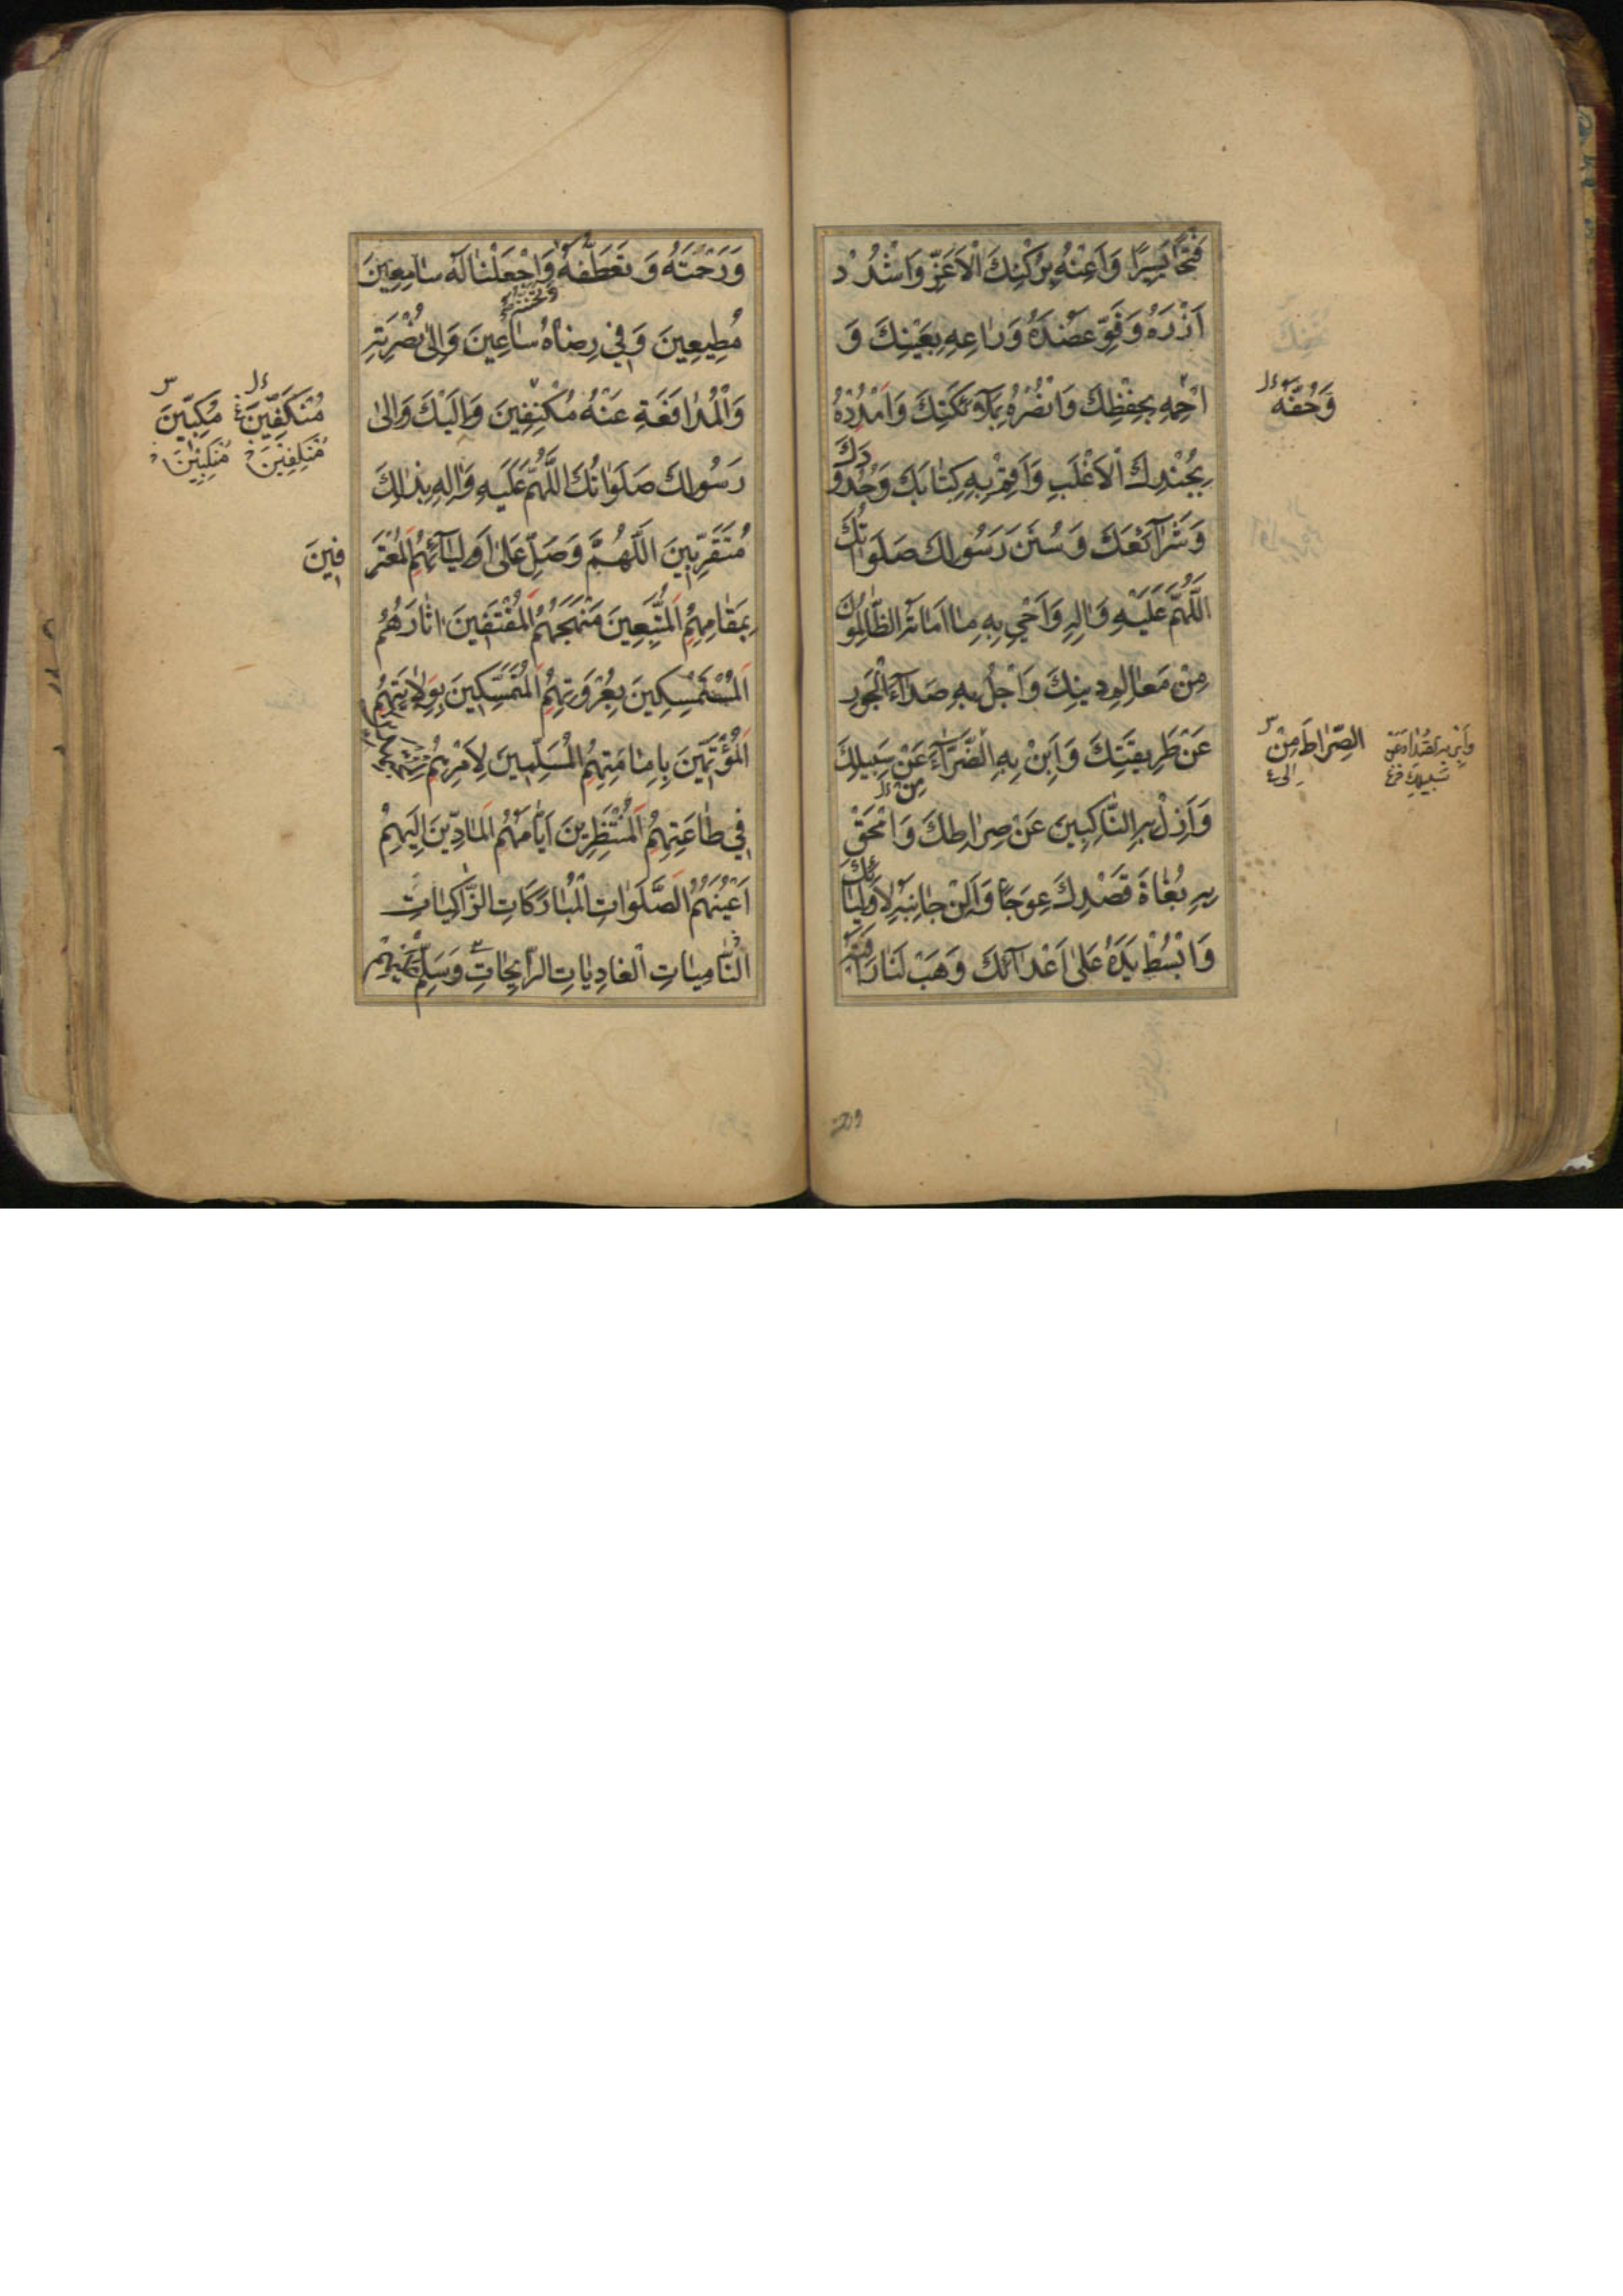 فَتْحًا يَسِيرًا وَاَعِنْهُ بِرُكْنِكَ الْاَعَزِّ وَاشْدُدْ
اَزْرَهُ وَقَوِّ عَضُدَهُ وَرَاعِهِ بِعَيْنِكَ وَ
احْمِهِ بِحِفْظِكَ وَانْصُرْهُ بِمَلَآئِكَتِكَ وَامْدُدْهُ
وَحُفَّهُ
بِجُنْدِكَ الْاَغْلَبِ وَاَقِمْ بِهِ كِتَابَكَ وَحُدُودَكَ
وَشَرَآئِعَكَ وَسُنَنَ رَسُولِكَ صَلَوَاتُكَ
اللّٰهُمَّ عَلَيْهِ وَاٰلِهِ وَاَحْيِ بِهِ مَا اَمَاتَهُ الظَّالِمُونَ
مِنْ مَعَالِمِ دِينِكَ وَاجْلُ بِهِ صَدَآءَ الْجَوْرِ
عَنْ طَرِيقَتِكَ وَاَبِنْ بِهِ الضَّرَّآءَ عَنْ سَبِيلِكَ
مِنْ
الصِّرَاطَ مِنْ
سَبِيلِكَ
وَاَزِلْ بِهِ النَّاكِبِينَ عَنْ صِرَاطِكَ وَامْحَقْ
بِهِ بُغَاةَ قَصْدِكَ عِوَجًا وَاَلِنْ جَانِبَهُ لِاَوْلِيَائِكَ
وَابْسُطْ يَدَهُ عَلٰى اَعْدَآئِكَ وَهَبْ لَنَا رَاْفَتَهُ
وَرَحْمَتَهُ وَتَعَطُّفَهُ وَاجْعَلْنَا لَهُ سَامِعِينَ
وَتَحَنُّنَهُ
مُطِيعِينَ وَفِي رِضَاهُ سَاعِينَ وَاِلٰى نُصْرَتِهِ
وَالْمُدَافَعَةِ عَنْهُ مُكْنِفِينَ وَاِلَيْكَ وَاِلٰى
مُتَكَنِّفِينَ مُكِبِّينَ
رَسُولِكَ صَلَوَاتُكَ اللّٰهُمَّ عَلَيْهِ وَاٰلِهِ بِذٰلِكَ
مُتَقَرِّبِينَ اَللّٰهُمَّ وَصَلِّ عَلٰى اَوْلِيَآئِهِمُ الْمُعْتَرِ
فِينَ
بِمَقَامِهِمُ الْمُتَّبِعِينَ مَنْهَجَهُمُ الْمُقْتَفِينَ اٰثَارَهُمُ
الْمُسْتَمْسِكِينَ بِعُرْوَتِهِمُ الْمُتَمَسِّكِينَ بِوِلَايَتِهِمُ
الْمُؤْتَمِّينَ بِاِمَامَتِهِمُ الْمُسَلِّمِينَ لِاَمْرِهِمُ
فِي طَاعَتِهِمُ الْمُنْتَظِرِينَ اَيَّامَهُمُ الْمَادِّينَ اِلَيْهِمْ
اَعْيُنَهُمُ الصَّلَوَاتِ الْمُبَارَكَاتِ الزَّاكِيَاتِ
النَّامِيَاتِ الْغَادِيَاتِ الرَّايِحَاتِ وَسَلِّمْ